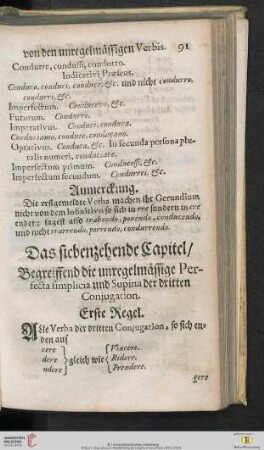 von den unregelmässigen Verbis. 91
Condurre, condussi, condotto.
Indicativi Præsens.
Conduco, conduci, conduce, &c. und nicht condurro,
condurri, &c.
Imperfectum. Conducevo, &c.
Futurum. Condurrò.
Imperativus. Conduci, conduca.
Conduciamo, conduce, conducano.
Optativus. Conduca, &c. In secunda persona plu-
ralis numeri, conduciate.
Imperfectum primum. Conducessi, &c.
Imperfectum secundum. Condurrei, &c.
Anmerckung.
Die erstgemeldte Verba machen ihr Gerundium
nicht von dem Infinitivo so sich in rre sondern in ere
endet: sagest also trahendo, ponendo, conducendo,
und nicht trarrendo, porrendo, condurrendo.
Das siebenzehende Capitel/
Begreiffend die unregelmässige Per-
fecta simplicia und Supina der dritten
Conjugation.
Erste Regel.
Alle Verba der dritten Conjugation, so sich en-
den auf
cere Vincere.
dere gleich wie Ridere.
ndere Prendere.
gere